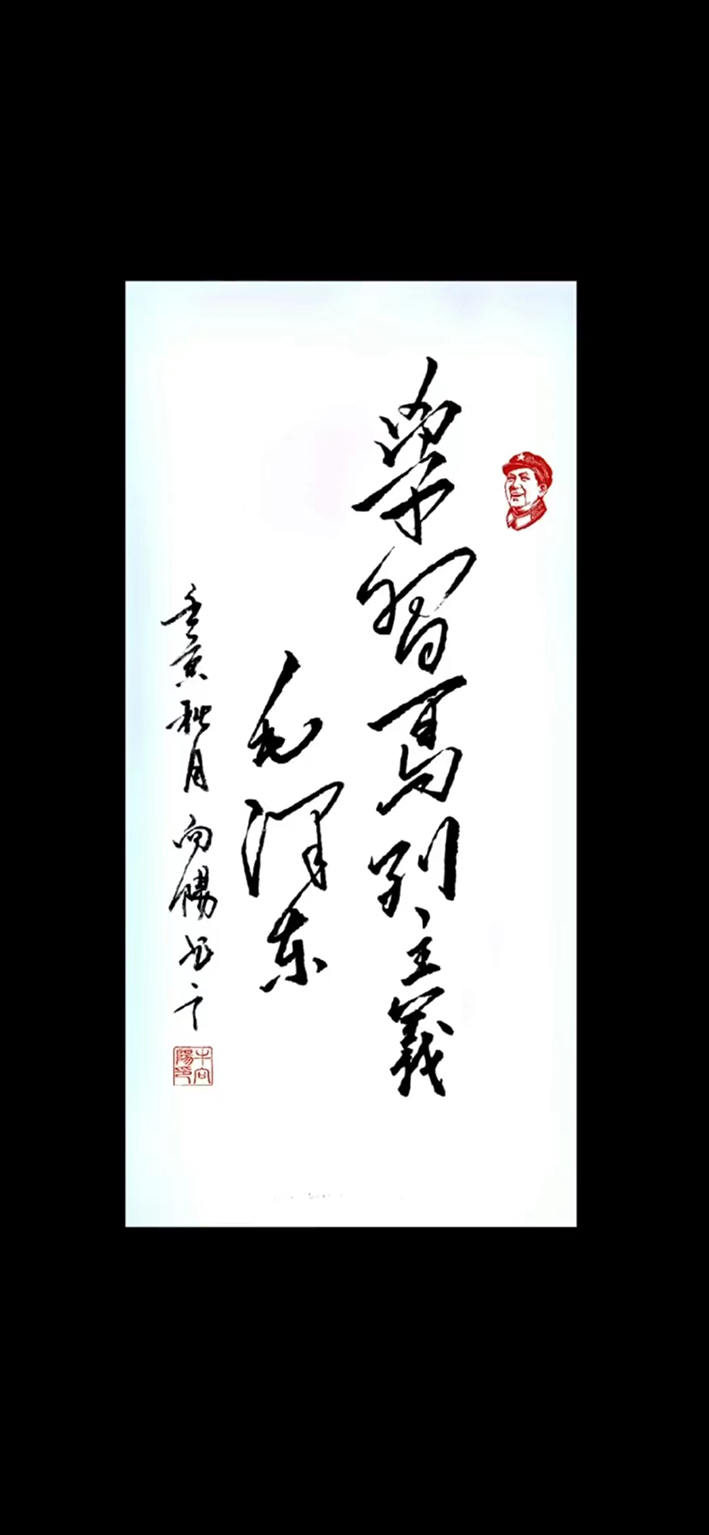 學習馬列主義
毛澤东
壬寅秋月向陽书
向陽印